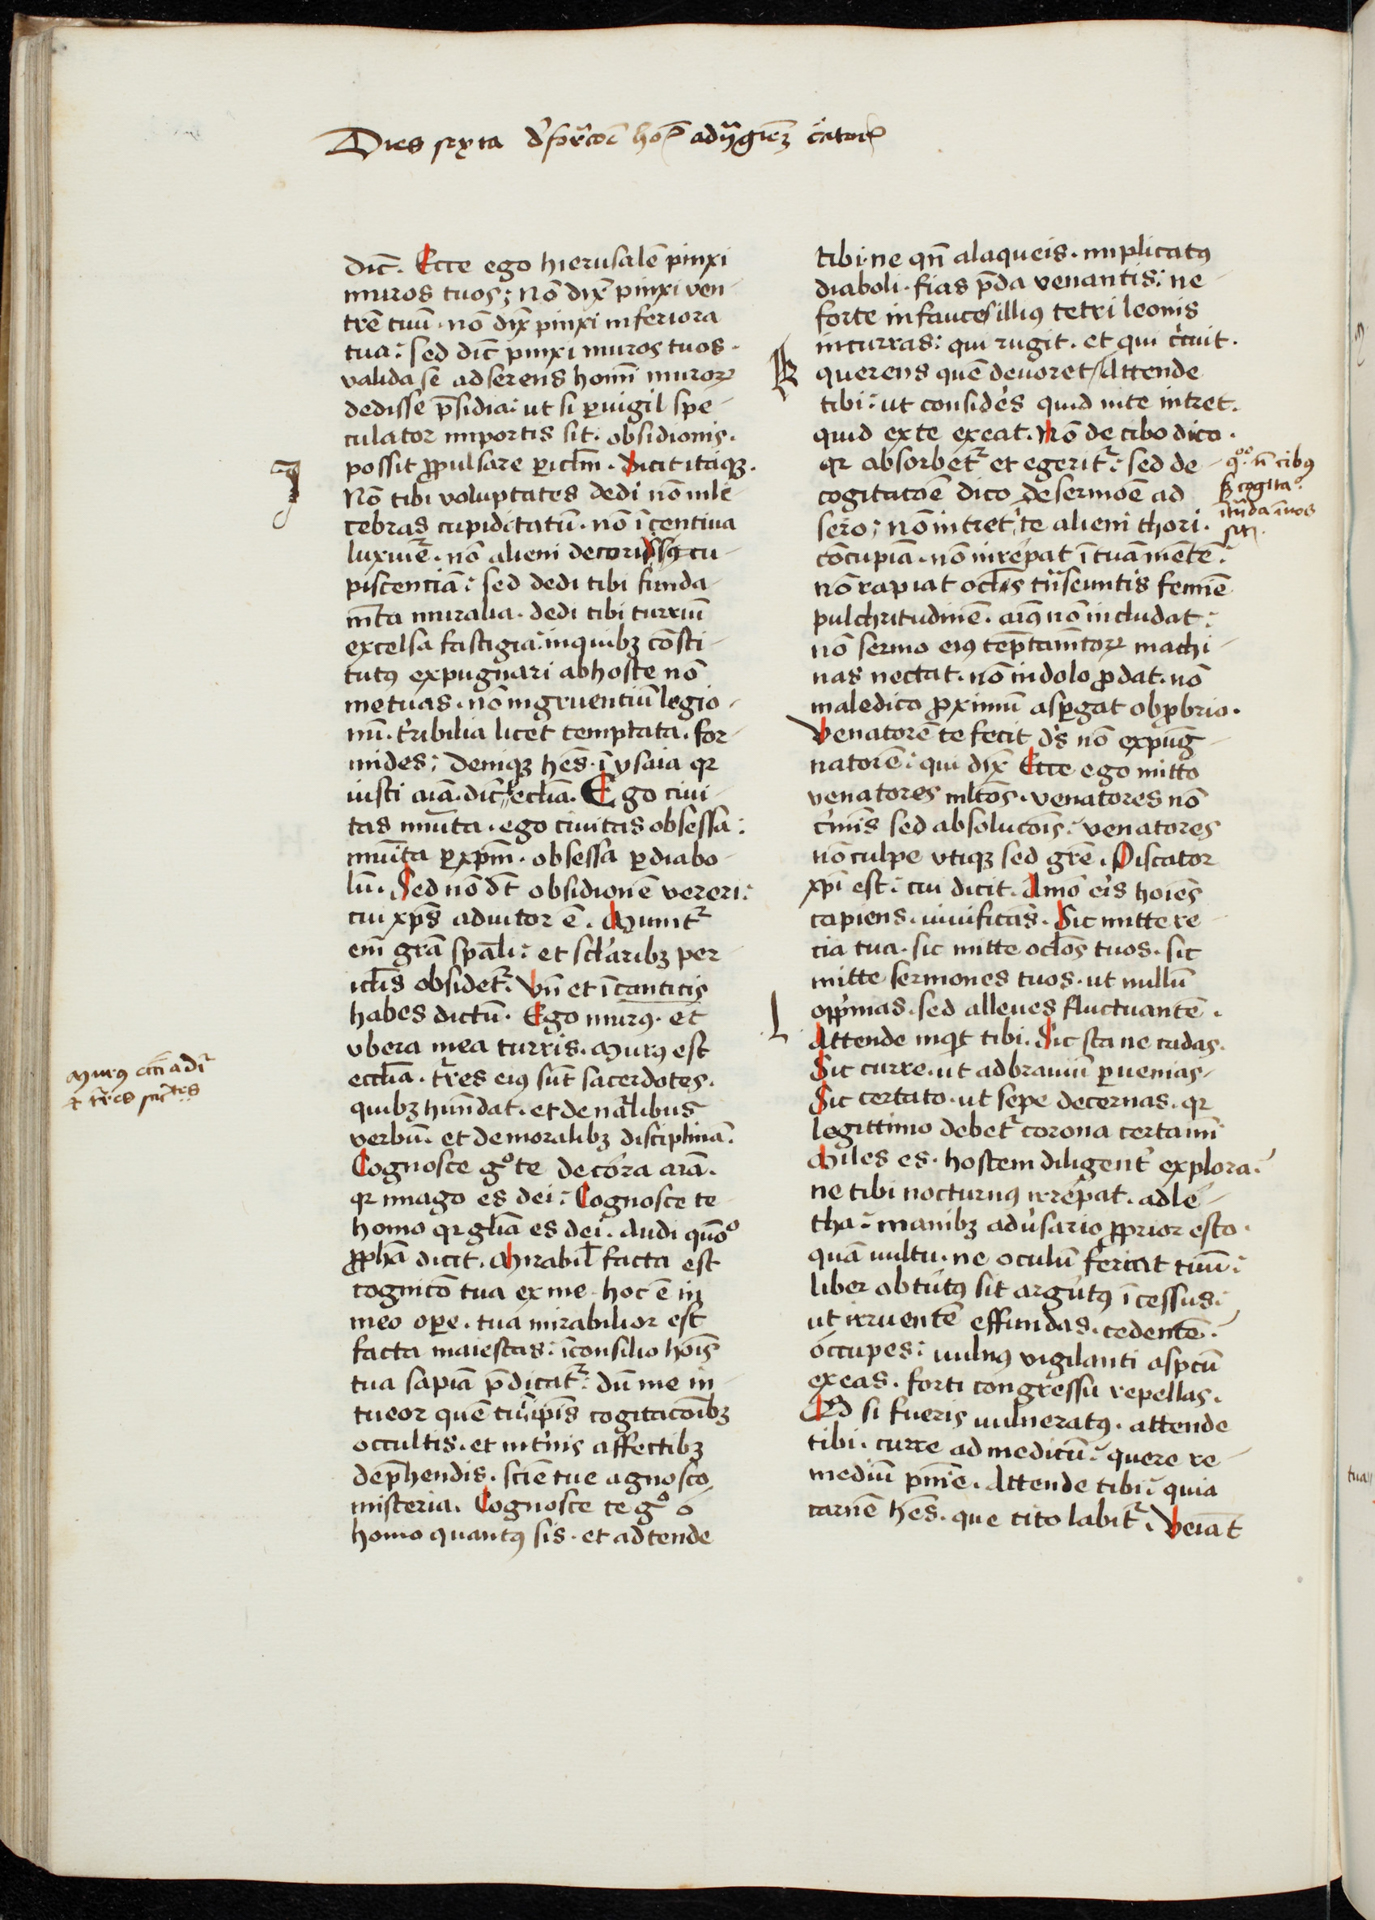 Dies sexta
dic̄. Ecce ego hierusalē pinxi
muros tuos; Nō dix̄ pinxi ven-
trē tuū. nō dix̄ pinxi inferiora
tua: sed dic̄ pinxi muros tuos.
valida se adserens homī muroꝝ
dedisse p̄sidia: ut si ꝑuigil spe-
culator in portis sit. obsidionis.
possit ꝓpulsare ꝑiclm̄. Dicit itaqꝫ.
J
Nō tibi voluptates dedi nō inle-
cebras cupiditatū. nō īcentiua
luxurīe. nō alieni decoris cu-
piscentiā: sed dedi tibi funda-
mn̄ta muralia. dedi tibi turriū
excelsa fastigia: in quibꝫ cōsti-
tutꝰ expugnari ab hoste nō
metuas. nō ingruentiū legio-
nū. t̓ribilia licet temptata. for-
mides: Deniqꝫ hēs. ī ysaia qr
iusti aīa. dic̄ eccl̄ia. Ego ciui-
tas munīta. ego ciuitas obsessa:
munīta ꝑ xp̄m. obsessa ꝑ diabo-
lū. Sed nō dt̄ obsidionē vereri:
cui xp̄s adiutor ē. Munitᷣ
em̄ grā sp̄ali: et scl̄aribꝫ per
iclīs obsidetᷣ. Vn̄ et ī canticis
habes dictū. Ego murꝰ. et
vbera mea turris. Murꝰ est
Murꝰ
eccl̄ia. tᷣres eiꝰ sūt sacerdotes.
quibꝫ hūndat. et de nālibus
verbū. et de moralibꝫ disciplinā.
Cognosce gͦ te decora aīa.
qr imago es dei: Cognosce te
homo qr gl̄ia es dei. Audi quōͦ
ꝓph̄a dicit. Mirabil̄ facta est
cognicō tua ex me. hoc ē in
meo oꝑe. tua mirabilior est
facta maiestas: ī consilio hoīs
tua sapīa p̄dicatᷣ: dū me in-
tueor quē tu ipīs cogitacōibꝫ
occultis. et int̓nis affectibꝫ
dep̄hendis. sciē tue agnosco
misteria. Cognosce te gͦ o
homo quantꝰ sis. et adtende
tibi. ne qn̄ a laqueis. implicatꝰ
diaboli. fias p̄da venantis: ne
forte in fauces illiꝰ tetri leonis
incurras: qui rugit. et qui c̓cuit.
K
querens quē deuoret / Attende
tibi: ut consid̓es quid in te intret.
quid ex te exeat. Nō de cibo dico.
qr absorbetᷣ et egeritᷣ: sed de
cogitacōe dico de sermōe ad
sero; nō intret ī te alieni thori.
cōcupīa. nō inrepat ī tuā mētē:
nō rapiat oclīs tn̄seuntis femīe
pulchritudinē. aīꝰ nō includat:
nō sermo eiꝰ tēptamtoꝝ machi-
nas nectat. nō in dolo ꝓdat. nō
maledico ꝓximū aspgat obꝓbrio.
Venatorē te fecit dꝰs nō expug-
natorē: qui dix̄ Ecce ego mitto
venatores mltōs. venatores nō
c̓minīs sed absolucōis: venatores
nō culpe vtiqꝫ sed gr̄e. Piscator
xp̄i est: cui dicit. Amō eris hoīes
capiens. uiuificās. Sic mitte re-
cia tua. sic mitte oclōs tuos. sic
mitte sermones tuos. ut nullū
opp̓mas. sed alleues fluctuantē.
L
Attende inqͥt tibi. Sic sta ne cadas.
Sic curre. ut ad brauiū ꝑuenias.
Sic certato. ut sepe decernas. qr
legittimo debetᷣ corona certamī
Miles es. hostem diligent̓ explora:
ne tibi nocturnꝰ irrepat. ad le-
tha: manibꝫ adu̓sario ꝓprior esto.
quā uultu. ne oculū feriat tuū:
liber obtutꝰ sit argutꝰ īcessus:
ut irruentē effundas. cedentē.
occupes: uulnꝰ vigilanti aspcū
exeas. forti congressu repellas.
Qd si fueris uulneratꝰ. attende
tibi. curre ad medicū: quere re-
mediū pnīe. Attende tibi: quia
carnē hēs. que cito labitᷣ. Veīat